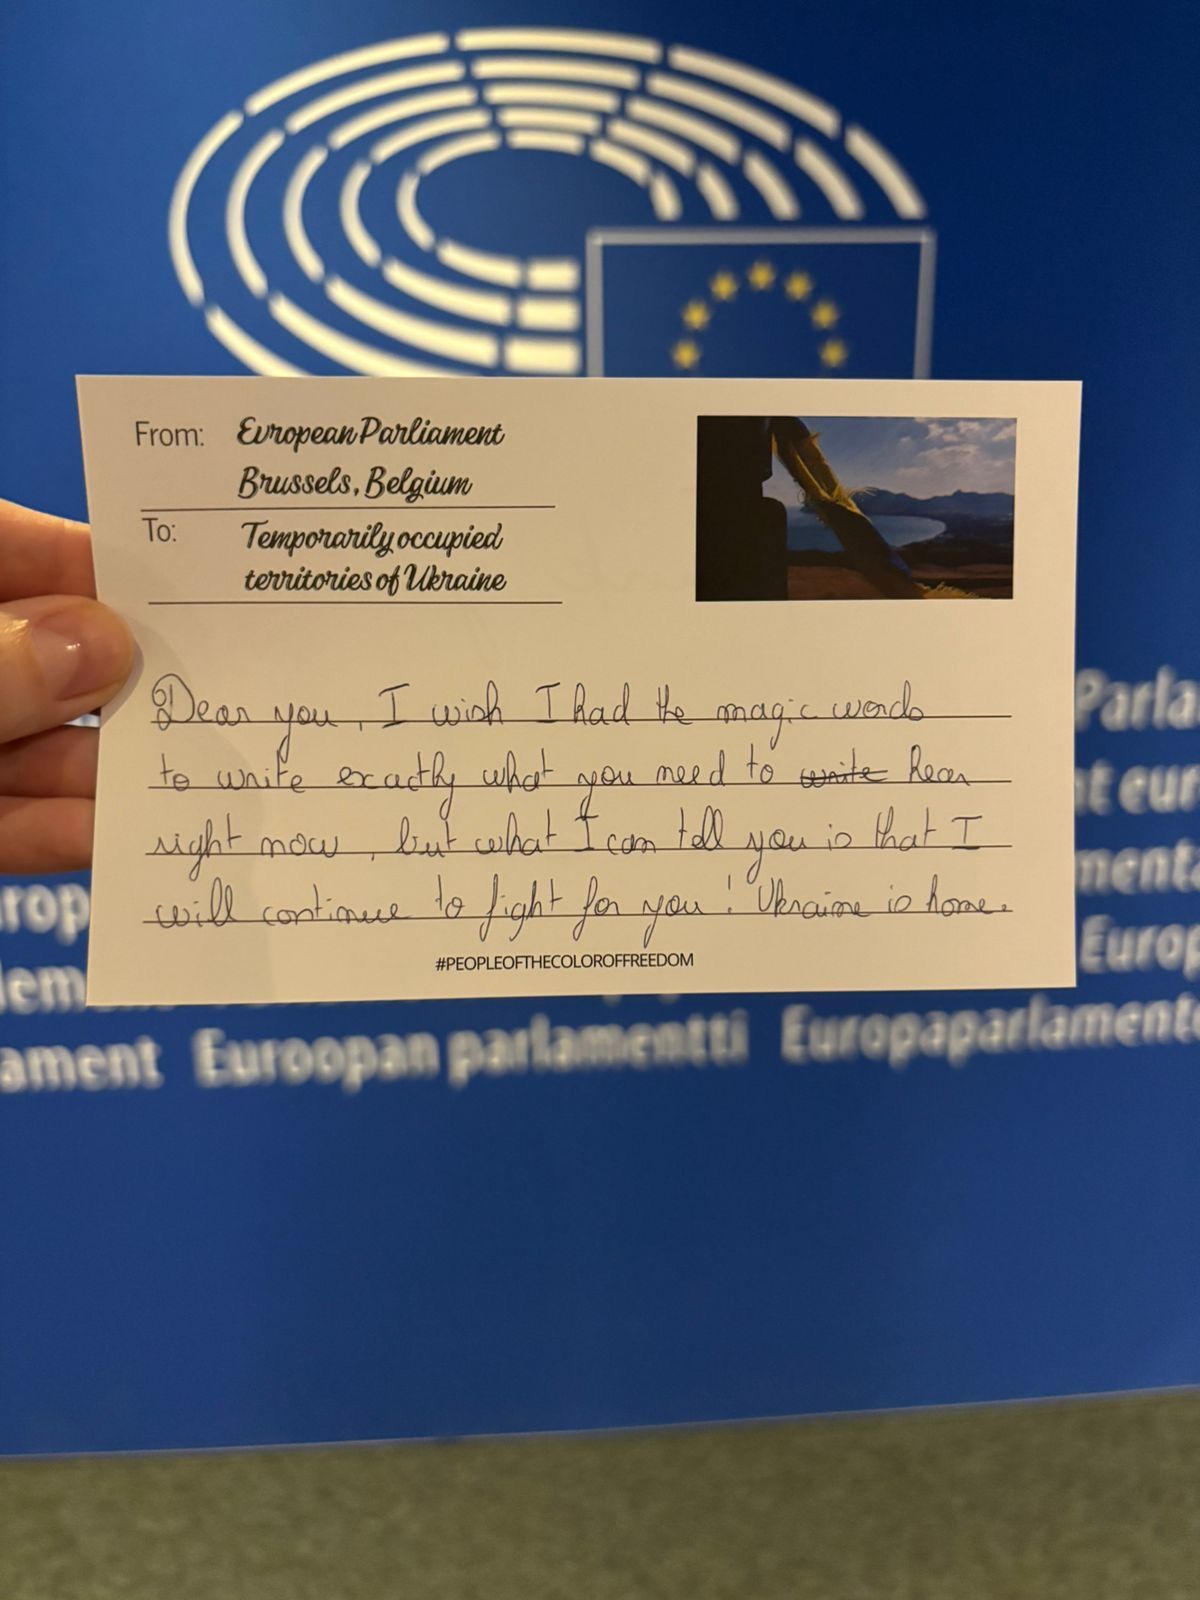 From: European Parliament
Brussels, Belgium
To: Temporarily occupied
territories of Ukraine
Dear you, I wish I had the magic words
to write exactly what you need to write hear
right now, but what I can tell you is that I
will continue to fight for you! Ukraine is home.
#PEOPLEOFTHECOLOROFFREEDOM
Parla
t eur
ment
Europ
ament Euroopan parlamentti Europaparlament